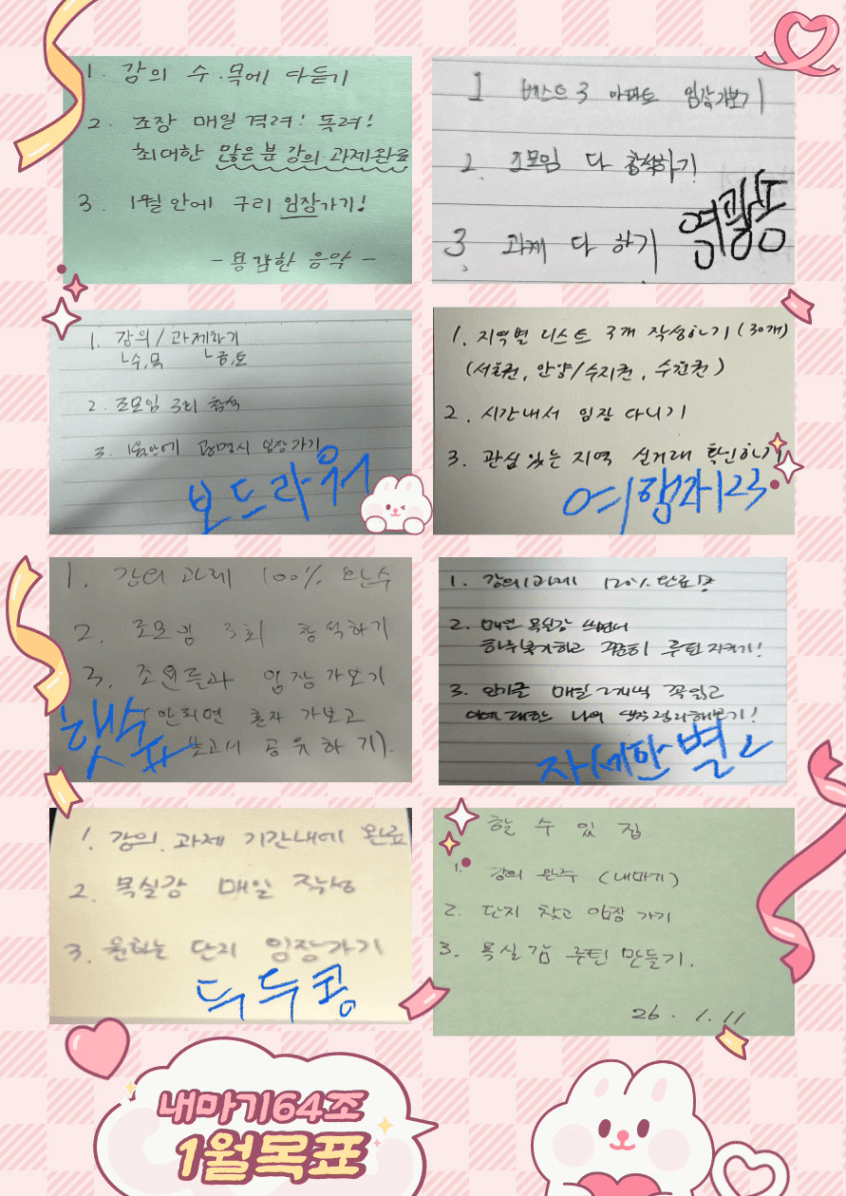 1. 강의 수.목에 다듣기
2. 조장 매일 격려! 독려!
최대한 많은분 강의 과제완료
3. 1월 안에 구리 임장가기!
- 용감한 음악 -
1 베스트3 아파트 임장가보기
2. 조모임 다 참석하기
3. 과제 다 하기
영광동
1. 강의/과제하기
수,목 금,토
2. 조모임 3회 참석
3. 1월안에 광명시 임장가기
보드라워
1. 지역별 리스트 3개 작성하기 (30개)
(서울권, 안양/수지권, 수원권)
2. 시간내서 임장 다니기
3. 관심있는 지역 실거래 확인하기
여행자123
1. 강의 과제 100% 완수
2. 조모임 3회 참석하기
3. 조원들과 임장 가보기
(안되면 혼자 가보고
보고서 공유하기).
햇슈
1. 강의/과제 120% 완료!
2. 매번 목실감 쓰면서
하루복기하고 꾸준히 루틴 지키기!
3. 인기글 매일 2개씩 꼭읽고
이에 대한 나의 생각정리해보기!
자세한별
1. 강의, 과제 기간내에 완료
2. 목실감 매일 작성
3. 원하는 단지 임장가기
두두콩
할 수 있 집
1. 강의 완주 (내마기)
2. 단지 찾고 임장 가기
3. 목실감 루틴 만들기.
26. 1. 11
내마기64조
1월목표